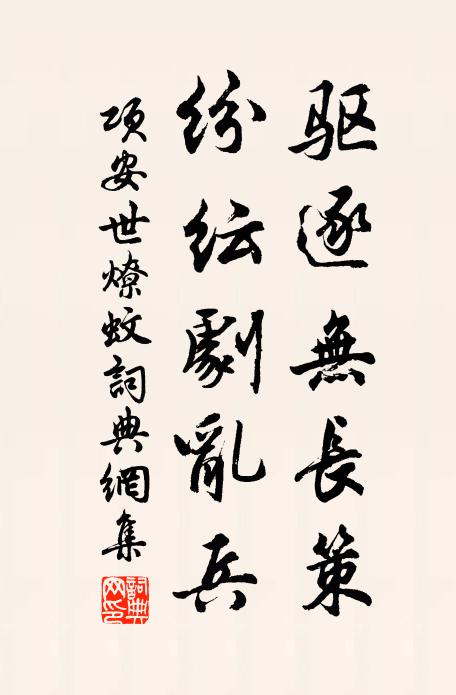 驱逐無長策
纷纭劇亂兵
项安世燎蚊詞典網集
詞典网印